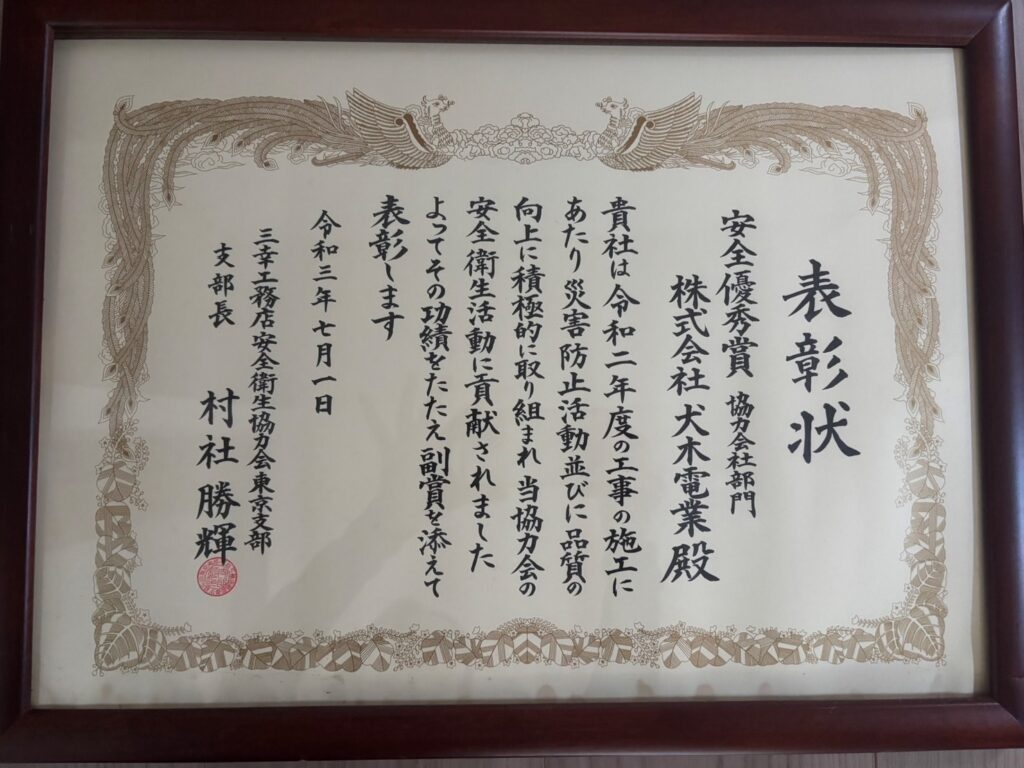 表彰状
安全優秀賞 協力会社部門
株式会社 犬木電業 殿
貴社は令和二年度の工事の施工に
あたり災害防止活動並びに品質の
向上に積極的に取り組まれ当協力会の
安全衛生活動に貢献されました
よってその功績をたたえ副賞を添えて
表彰します
令和三年七月一日
三幸工務店安全衛生協力会東京支部
支部長 村社勝輝